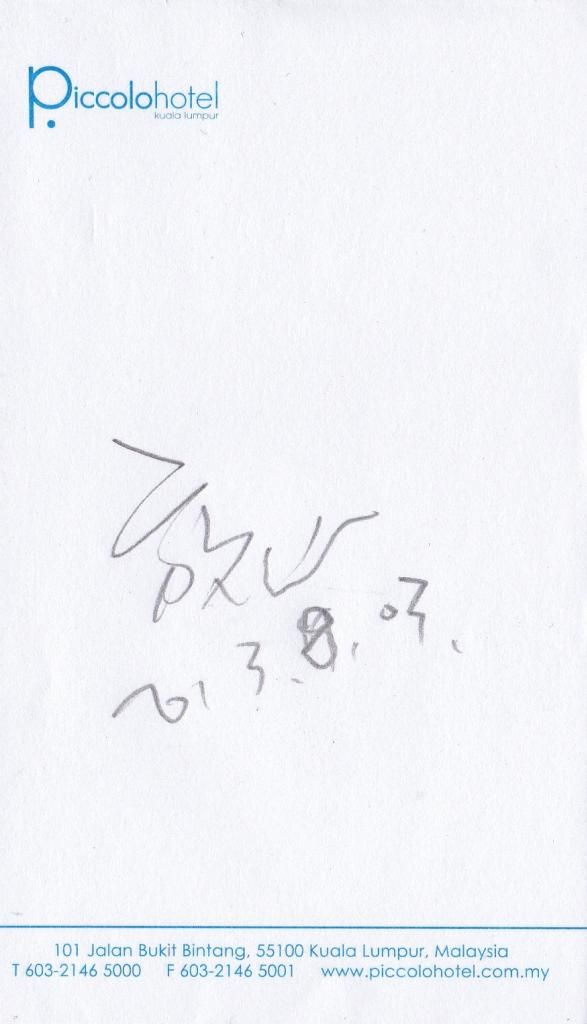 Piccolohotel
kuala lumpur
2013.8.03.
101 Jalan Bukit Bintang, 55100 Kuala Lumpur, Malaysia
T 603-2146 5000 F 603-2146 5001 www.piccolohotel.com.my